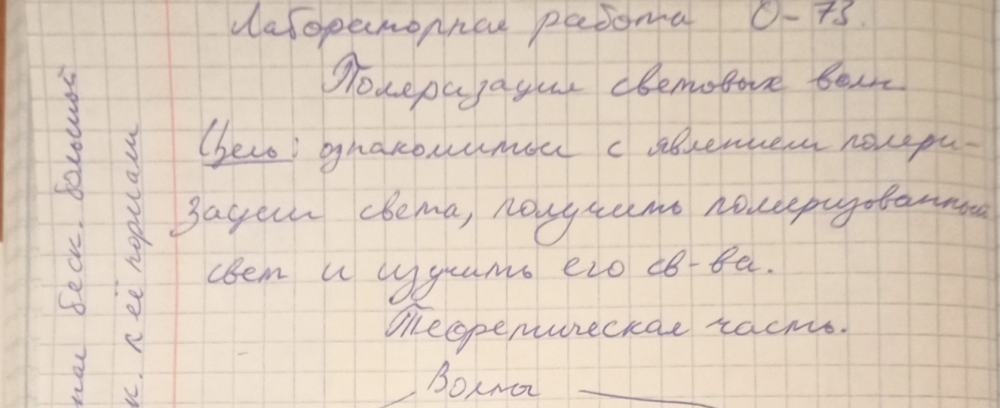 Лабораторная работа О-73.
Поляризация световых волн
Цель: ознакомиться с явлением поляри-
зации света, получить поляризованный
свет и изучить его св-ва.
Теоретическая часть.
Волны
беск. большой
к её нормали